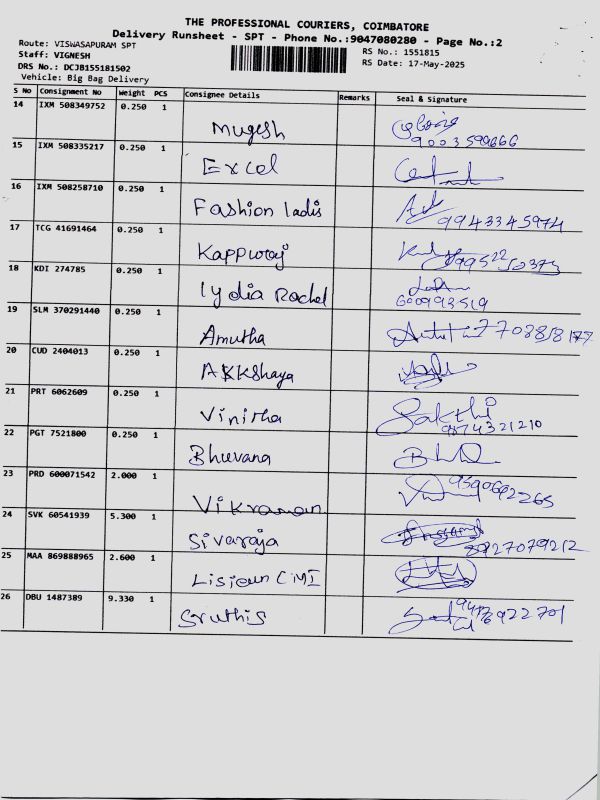 THE PROFESSIONAL COURIERS, COIMBATORE
Delivery Runsheet - SPT - Phone No.:9047080280 - Page No.:2
Route: VISWASAPURAM SPT
RS No.: 1551815
Staff: VIGNESH
RS Date: 17-May-2025
DRS No.: DCJB155181502
Vehicle: Big Bag Delivery
S No Consignment No Weight PCS Consignee Details Remarks Seal & Signature
14 IXM 508349752 0.250 1
Mugesh
9003599666
15 IXM 508335217 0.250 1
Excel
16 IXM 508258710 0.250 1
Fashion ladis
9943345974
17 TCG 41691464 0.250 1
Kappuraj
18 KDI 274785 0.250 1
lydia Rachel
600993519
19 SLM 370291440 0.250 1
Amutha
20 CUD 2404013 0.250 1
AKKshaya
21 PRT 6062609 0.250 1
Vinitha Sakthi
9874321210
22 PGT 7521800 0.250 1
Bhuvana
23 PRD 600071542 2.000 1
Vikraman
24 SVK 60541939 5.300 1
Sivaraja
8927079212
25 MAA 869888965 2.600 1
Lisieun CMI
26 DBU 1487389 9.330 1
Sruthis